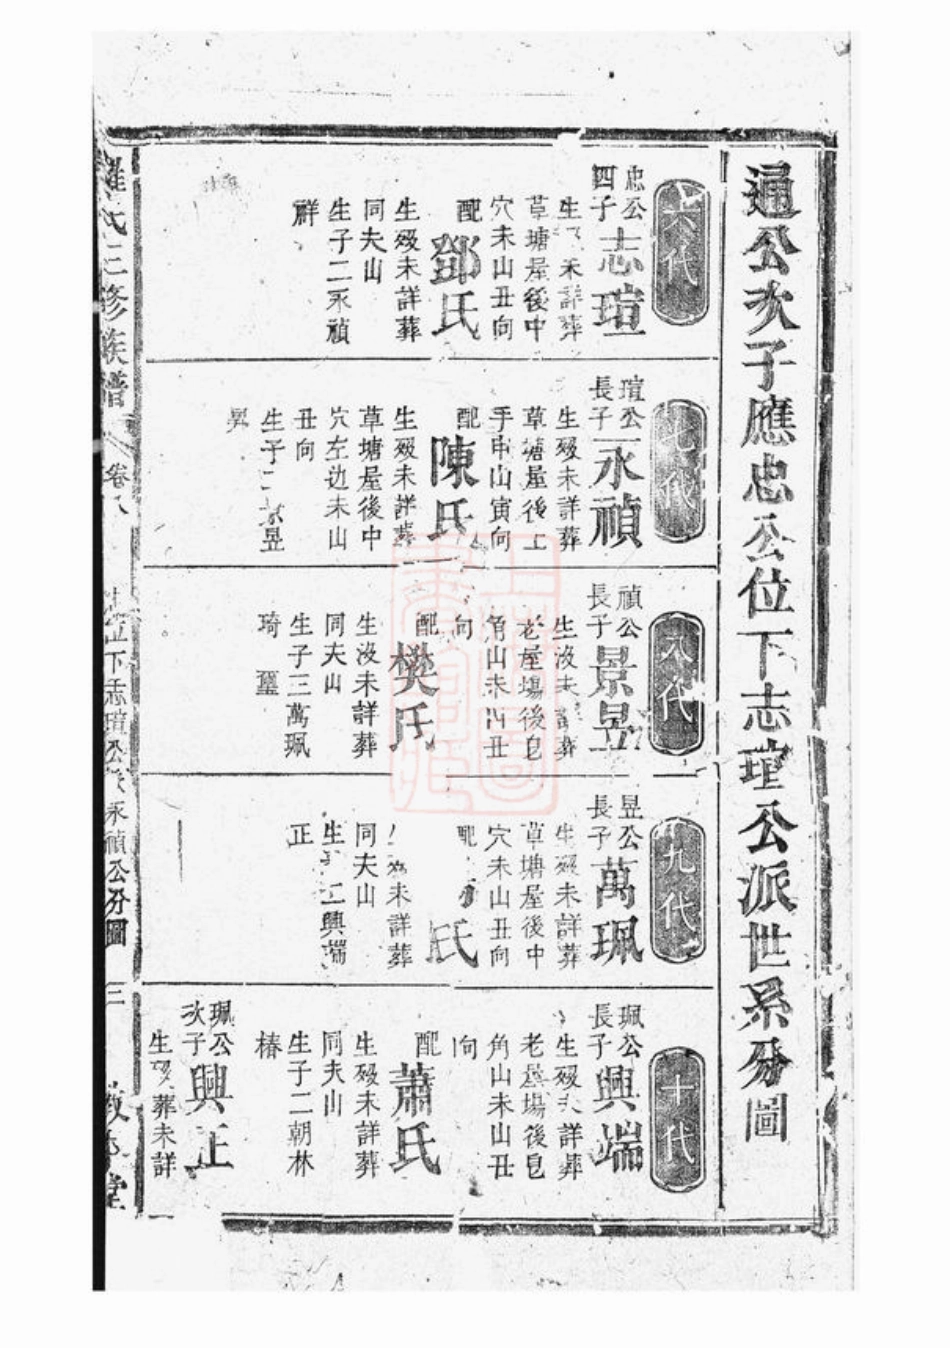 通公次子應忠公位下志瑄公派世系分圖
六代
忠公四子
志瑄
生 未詳葬
草塘屋後中
穴未山丑向
配
鄧氏
生殁未詳葬
同夫山
生子二永禎
祥
七代
瑄公長子
永禎
生殁未詳葬
草塘屋後上
手申山寅向
配
陳氏
生殁未詳葬
草塘屋後中
穴左边未山
丑向
生子二景昱
昇
八代
禎公長子
景昱
生没未詳葬
老屋場後皀
角山未山丑
向
配
樊氏
生没未詳葬
同夫山
生子三萬珮
琦 璽
九代
昱公長子
萬珮
生殁未詳葬
草塘屋後中
穴未山丑向
配
氏
生殁未詳葬
同夫山
生子二興端
正
十代
珮公長子
興端
生殁未詳葬
老屋場後皀
角山未山丑
向
配
蕭氏
生殁未詳葬
同夫山
生子二朝林
椿
珮公次子
興正
生殁葬未詳
氏三修族譜
卷八
位下志瑄公 永禎公分圖
三
堂